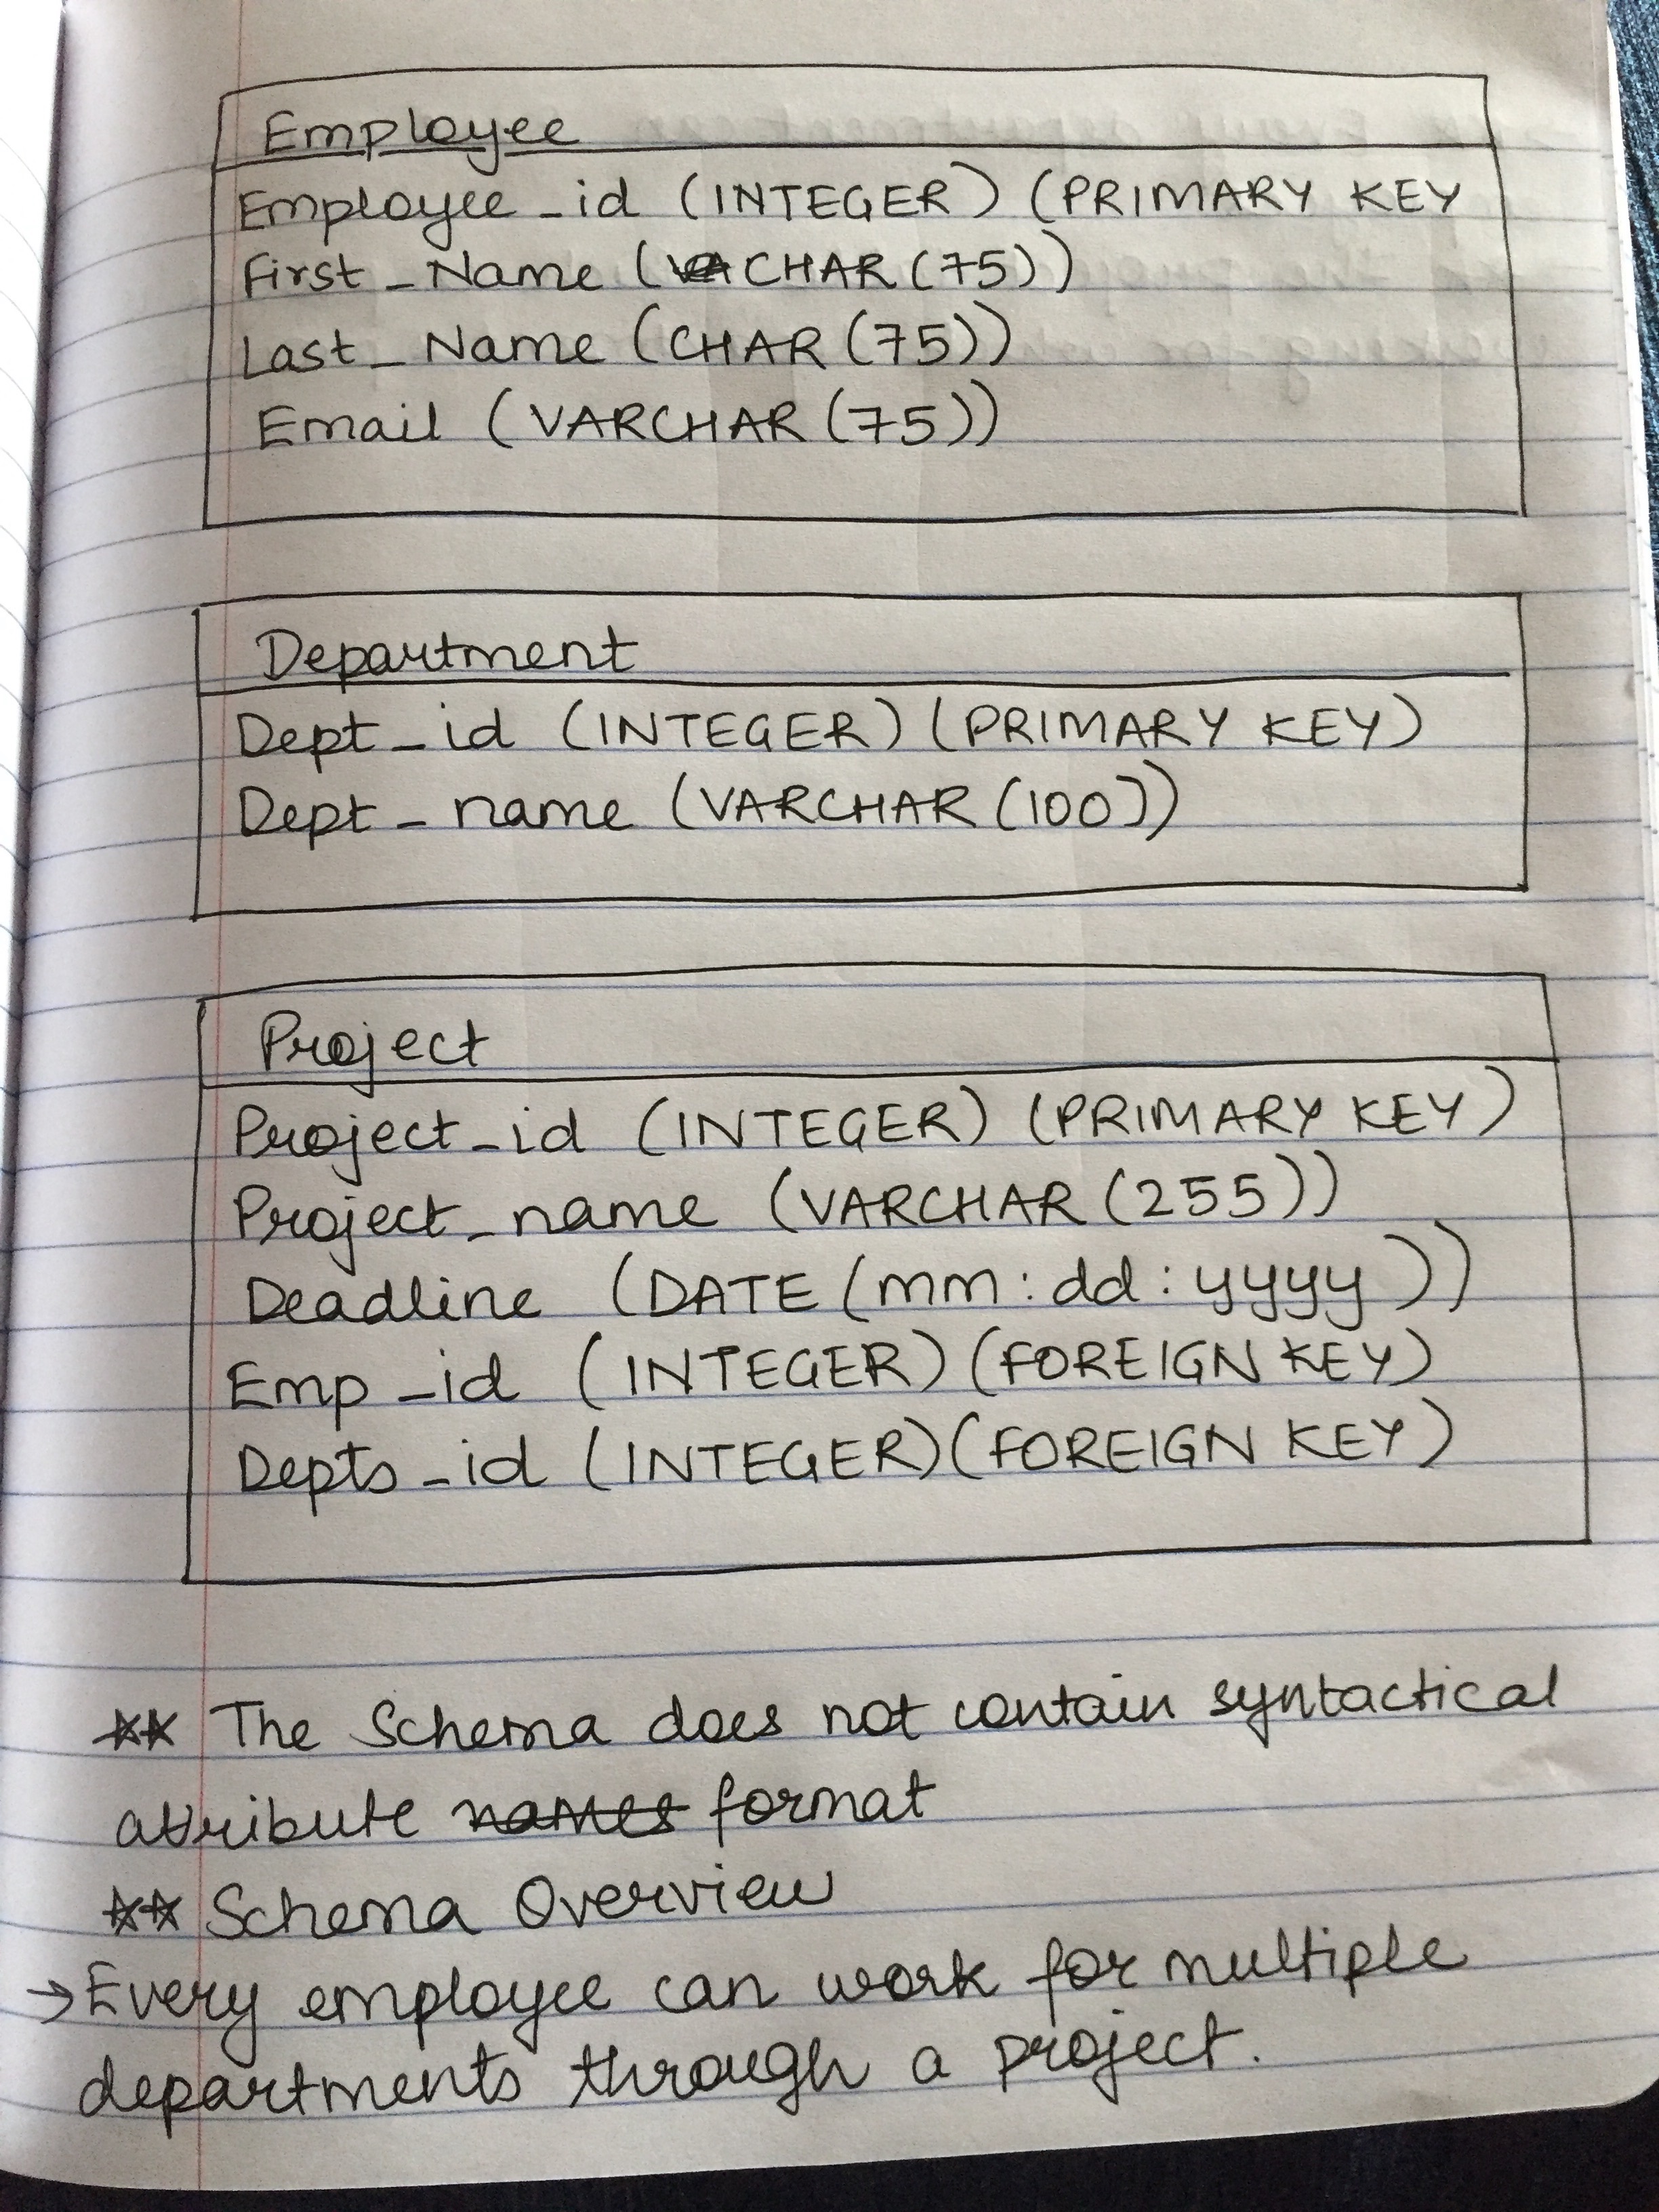 Employee
Employee_id (INTEGER) (PRIMARY KEY
First_Name (CHAR (75))
Last_Name (CHAR (75))
Email (VARCHAR (75))
Department
Dept_id (INTEGER) (PRIMARY KEY)
Dept_name (VARCHAR (100))
Project
Project_id (INTEGER) (PRIMARY KEY)
Project_name (VARCHAR (255))
Deadline (DATE (mm:dd:yyyy))
Emp_id (INTEGER) (FOREIGN KEY)
Depts_id (INTEGER) (FOREIGN KEY)
** The Schema does not contain syntactical
attribute names format
** Schema Overview
→ Every employee can work for multiple
departments through a project.